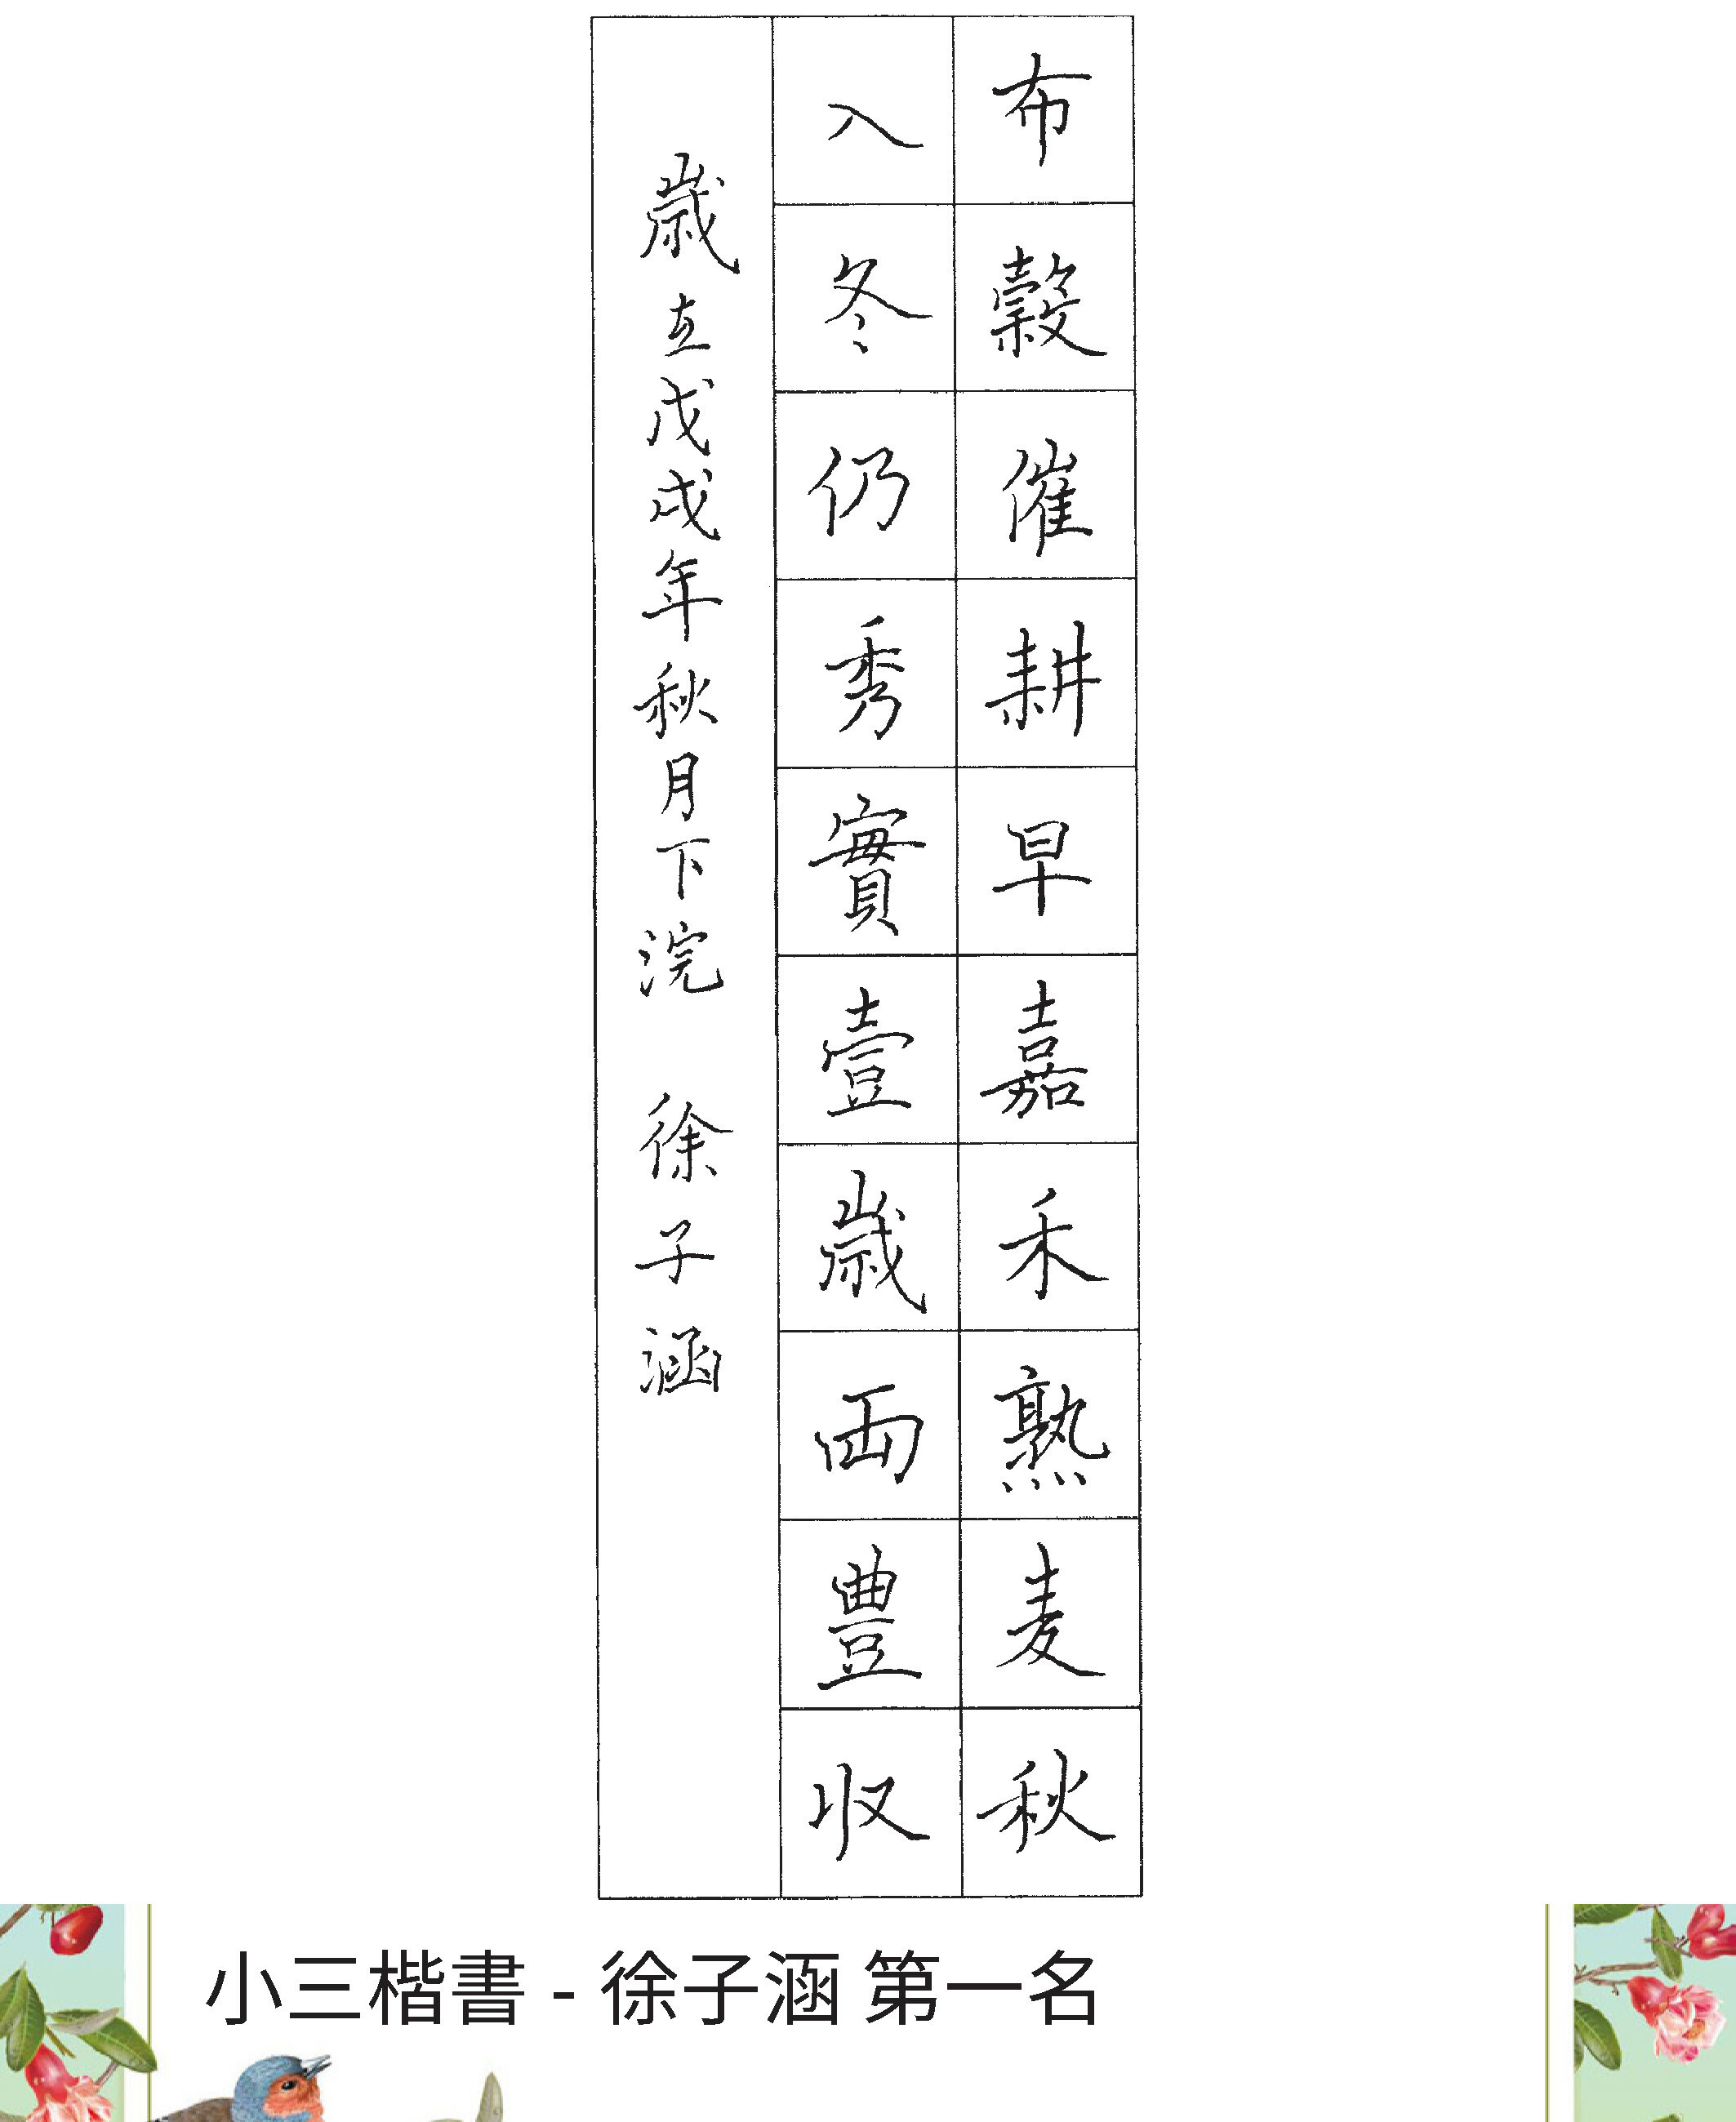 布穀催耕早嘉禾熟麦秋
入冬仍秀實壹歲両豊収
歲在戊戌年秋月下浣 徐子涵
小三楷書 - 徐子涵 第一名